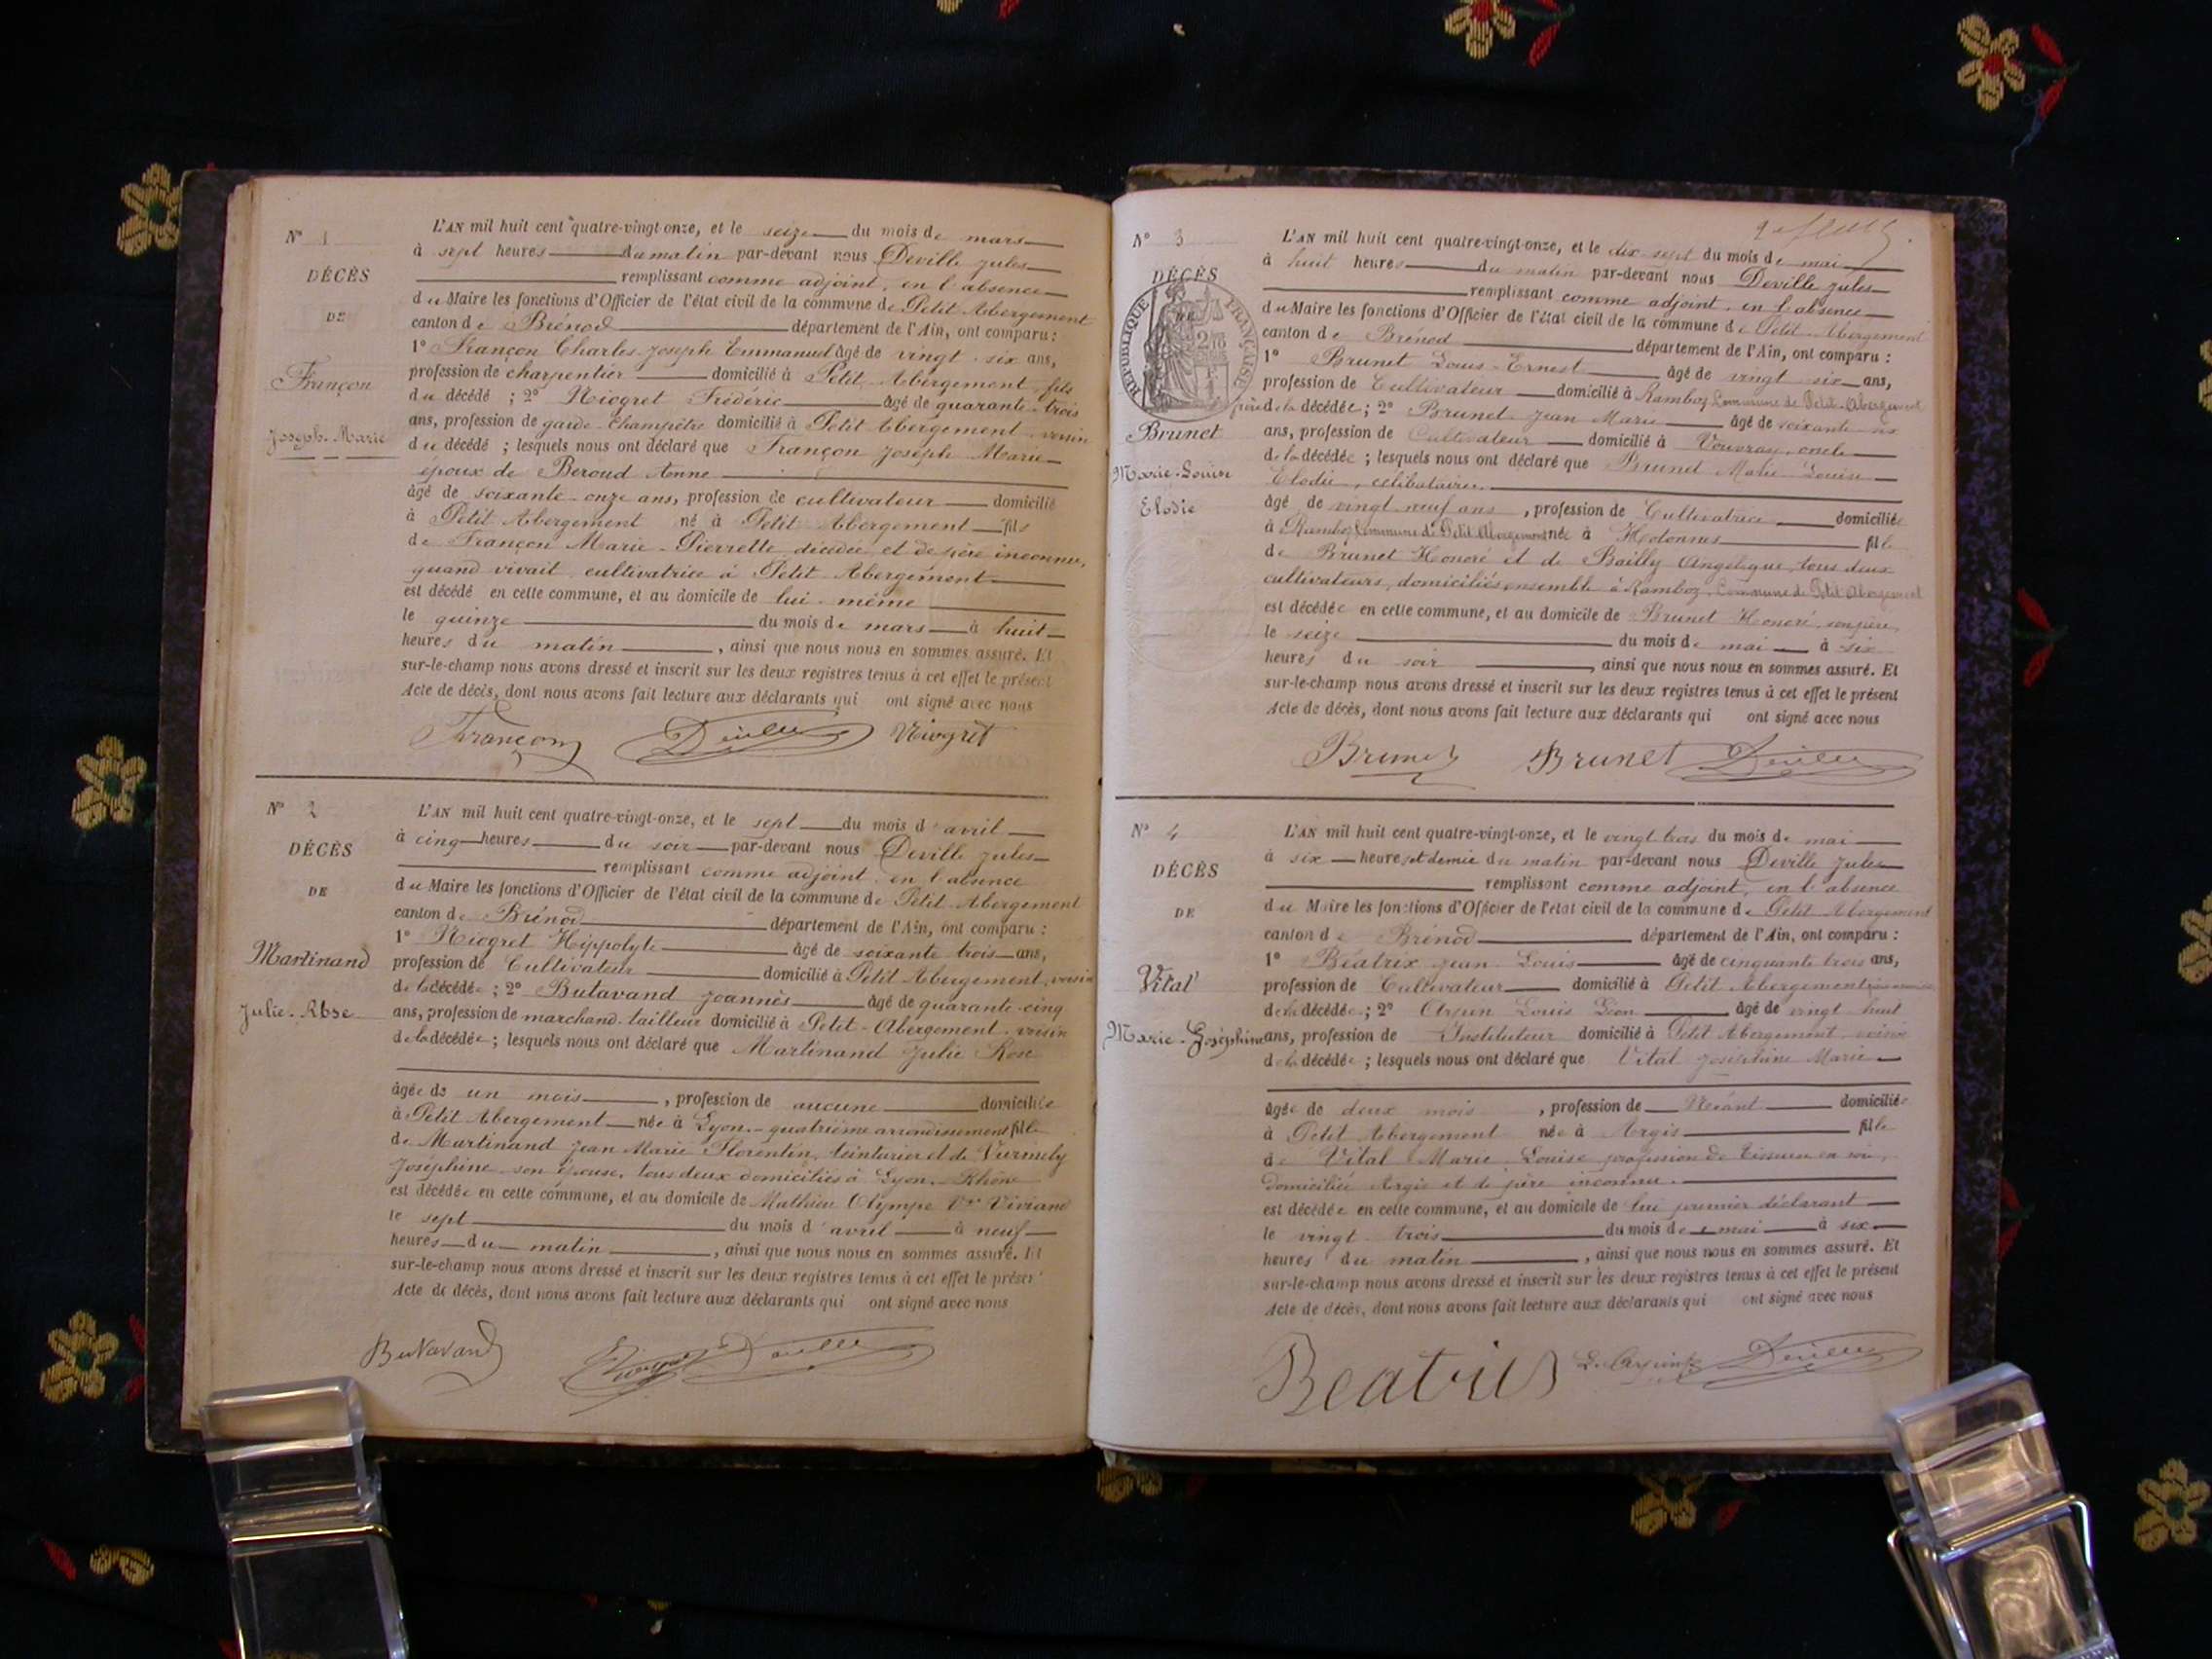 N° 1
DÉCÈS
DE
Françon
Joseph-Marie
L'AN mil huit cent quatre-vingt-onze, et le seize du mois de mars
à sept heures du matin par-devant nous Deville Jules
remplissant comme adjoint, en l'absence
du Maire les fonctions d'Officier de l'état civil de la commune de Petit Abergement
canton de Brénod département de l'Ain, ont comparu :
1° Françon Charles Joseph Emmanuel âgé de vingt-six ans,
profession de charpentier domicilié à Petit Abergement, fils
du décédé ; 2° Niogret Frédéric âgé de quarante-trois
ans, profession de garde-champêtre domicilié à Petit Abergement, voisin
du décédé ; lesquels nous ont déclaré que Françon Joseph Marie
époux de Beroud Anne
âgé de soixante-onze ans, profession de cultivateur domicilié
à Petit Abergement né à Petit Abergement fils
de Françon Marie-Pierrette, décédée, et de père inconnu,
quand vivait, cultivatrice à Petit Abergement
est décédé en cette commune, et au domicile de lui-même
le quinze du mois de mars à huit
heures du matin, ainsi que nous nous en sommes assuré. Et
sur-le-champ nous avons dressé et inscrit sur les deux registres tenus à cet effet le présent
Acte de décès, dont nous avons fait lecture aux déclarants qui ont signé avec nous
Françon Deville Niogret
N° 2
DÉCÈS
DE
Martinand
Julie-Rose
L'AN mil huit cent quatre-vingt-onze, et le sept du mois d'avril
à cinq heures du soir par-devant nous Deville Jules
remplissant comme adjoint, en l'absence
du Maire les fonctions d'Officier de l'état civil de la commune de Petit Abergement
canton de Brénod département de l'Ain, ont comparu :
1° Niogret Hippolyte âgé de soixante trois ans,
profession de Cultivateur domicilié à Petit Abergement, voisin
de la décédée ; 2° Butavand Joannès âgé de quarante-cinq
ans, profession de marchand-tailleur domicilié à Petit-Abergement, voisin
de la décédée ; lesquels nous ont déclaré que Martinand Julie Rose
âgée de un mois, profession de aucune domiciliée
à Petit Abergement née à Lyon - quatrième arrondissement fille
de Martinand Jean Marie Florentin, teinturier et de
Joséphine son épouse, tous deux domiciliés à Lyon - Rhône
est décédée en cette commune, et au domicile de Mathieu Olympe Vve Viviand
le sept du mois d'avril à neuf
heures du matin, ainsi que nous nous en sommes assuré. Et
sur-le-champ nous avons dressé et inscrit sur les deux registres tenus à cet effet le présent
Acte de décès, dont nous avons fait lecture aux déclarants qui ont signé avec nous
Butavand Niogret Deville
N° 3
DÉCÈS
RÉPUBLIQUE FRANÇAISE
Brunet
Marie-Louise
Elodie
L'AN mil huit cent quatre-vingt-onze, et le dix-sept du mois de mai
à huit heures du matin par-devant nous Deville Jules
remplissant comme adjoint, en l'absence
du Maire les fonctions d'Officier de l'état civil de la commune de Petit Abergement
canton de Brénod département de l'Ain, ont comparu :
1° Brunet Louis-Ernest âgé de vingt-six ans,
profession de Cultivateur domicilié à Ramboz Commune de Petit-Abergement
frère de la décédée ; 2° Brunet Jean Marie âgé de soixante-six
ans, profession de Cultivateur domicilié à Vouvray, oncle
de la décédée ; lesquels nous ont déclaré que Brunet Marie Louise
Elodie, célibataire.
âgé de vingt neuf ans, profession de Cultivatrice domiciliée
à Ramboz Commune de Petit Abergement née à Hotonnes fille
de Brunet Honoré et de Bailly Angélique, tous deux
cultivateurs, domiciliés ensemble à Ramboz, Commune de Petit Abergement
est décédée en cette commune, et au domicile de Brunet Honoré, son père,
le seize du mois de mai à six
heures du soir, ainsi que nous nous en sommes assuré. Et
sur-le-champ nous avons dressé et inscrit sur les deux registres tenus à cet effet le présent
Acte de décès, dont nous avons fait lecture aux déclarants qui ont signé avec nous
Brunet Brunet Deville
N° 4
DÉCÈS
DE
Vital
Marie-Joséphine
L'AN mil huit cent quatre-vingt-onze, et le vingt trois du mois de mai
à six heures et demie du matin par-devant nous Deville Jules
remplissant comme adjoint, en l'absence
du Maire les fonctions d'Officier de l'état civil de la commune de Petit Abergement
canton de Brénod département de l'Ain, ont comparu :
1° Béatrix Jean Louis âgé de cinquante trois ans,
profession de Cultivateur domicilié à Petit Abergement
de la décédée ; 2° Arpin Louis Léon âgé de vingt huit
ans, profession de Instituteur domicilié à Petit Abergement, voisin
de la décédée ; lesquels nous ont déclaré que Vital Joséphine Marie
âgée de deux mois, profession de Néant domiciliée
à Petit Abergement née à Argis fille
de Vital Marie Louise profession de tisseuse en soie,
domiciliée Argis et de père inconnu.
est décédée en cette commune, et au domicile de lui premier déclarant
le vingt-trois du mois de mai à six
heures du matin, ainsi que nous nous en sommes assuré. Et
sur-le-champ nous avons dressé et inscrit sur les deux registres tenus à cet effet le présent
Acte de décès, dont nous avons fait lecture aux déclarants qui ont signé avec nous
Beatrix L. Arpin Deville